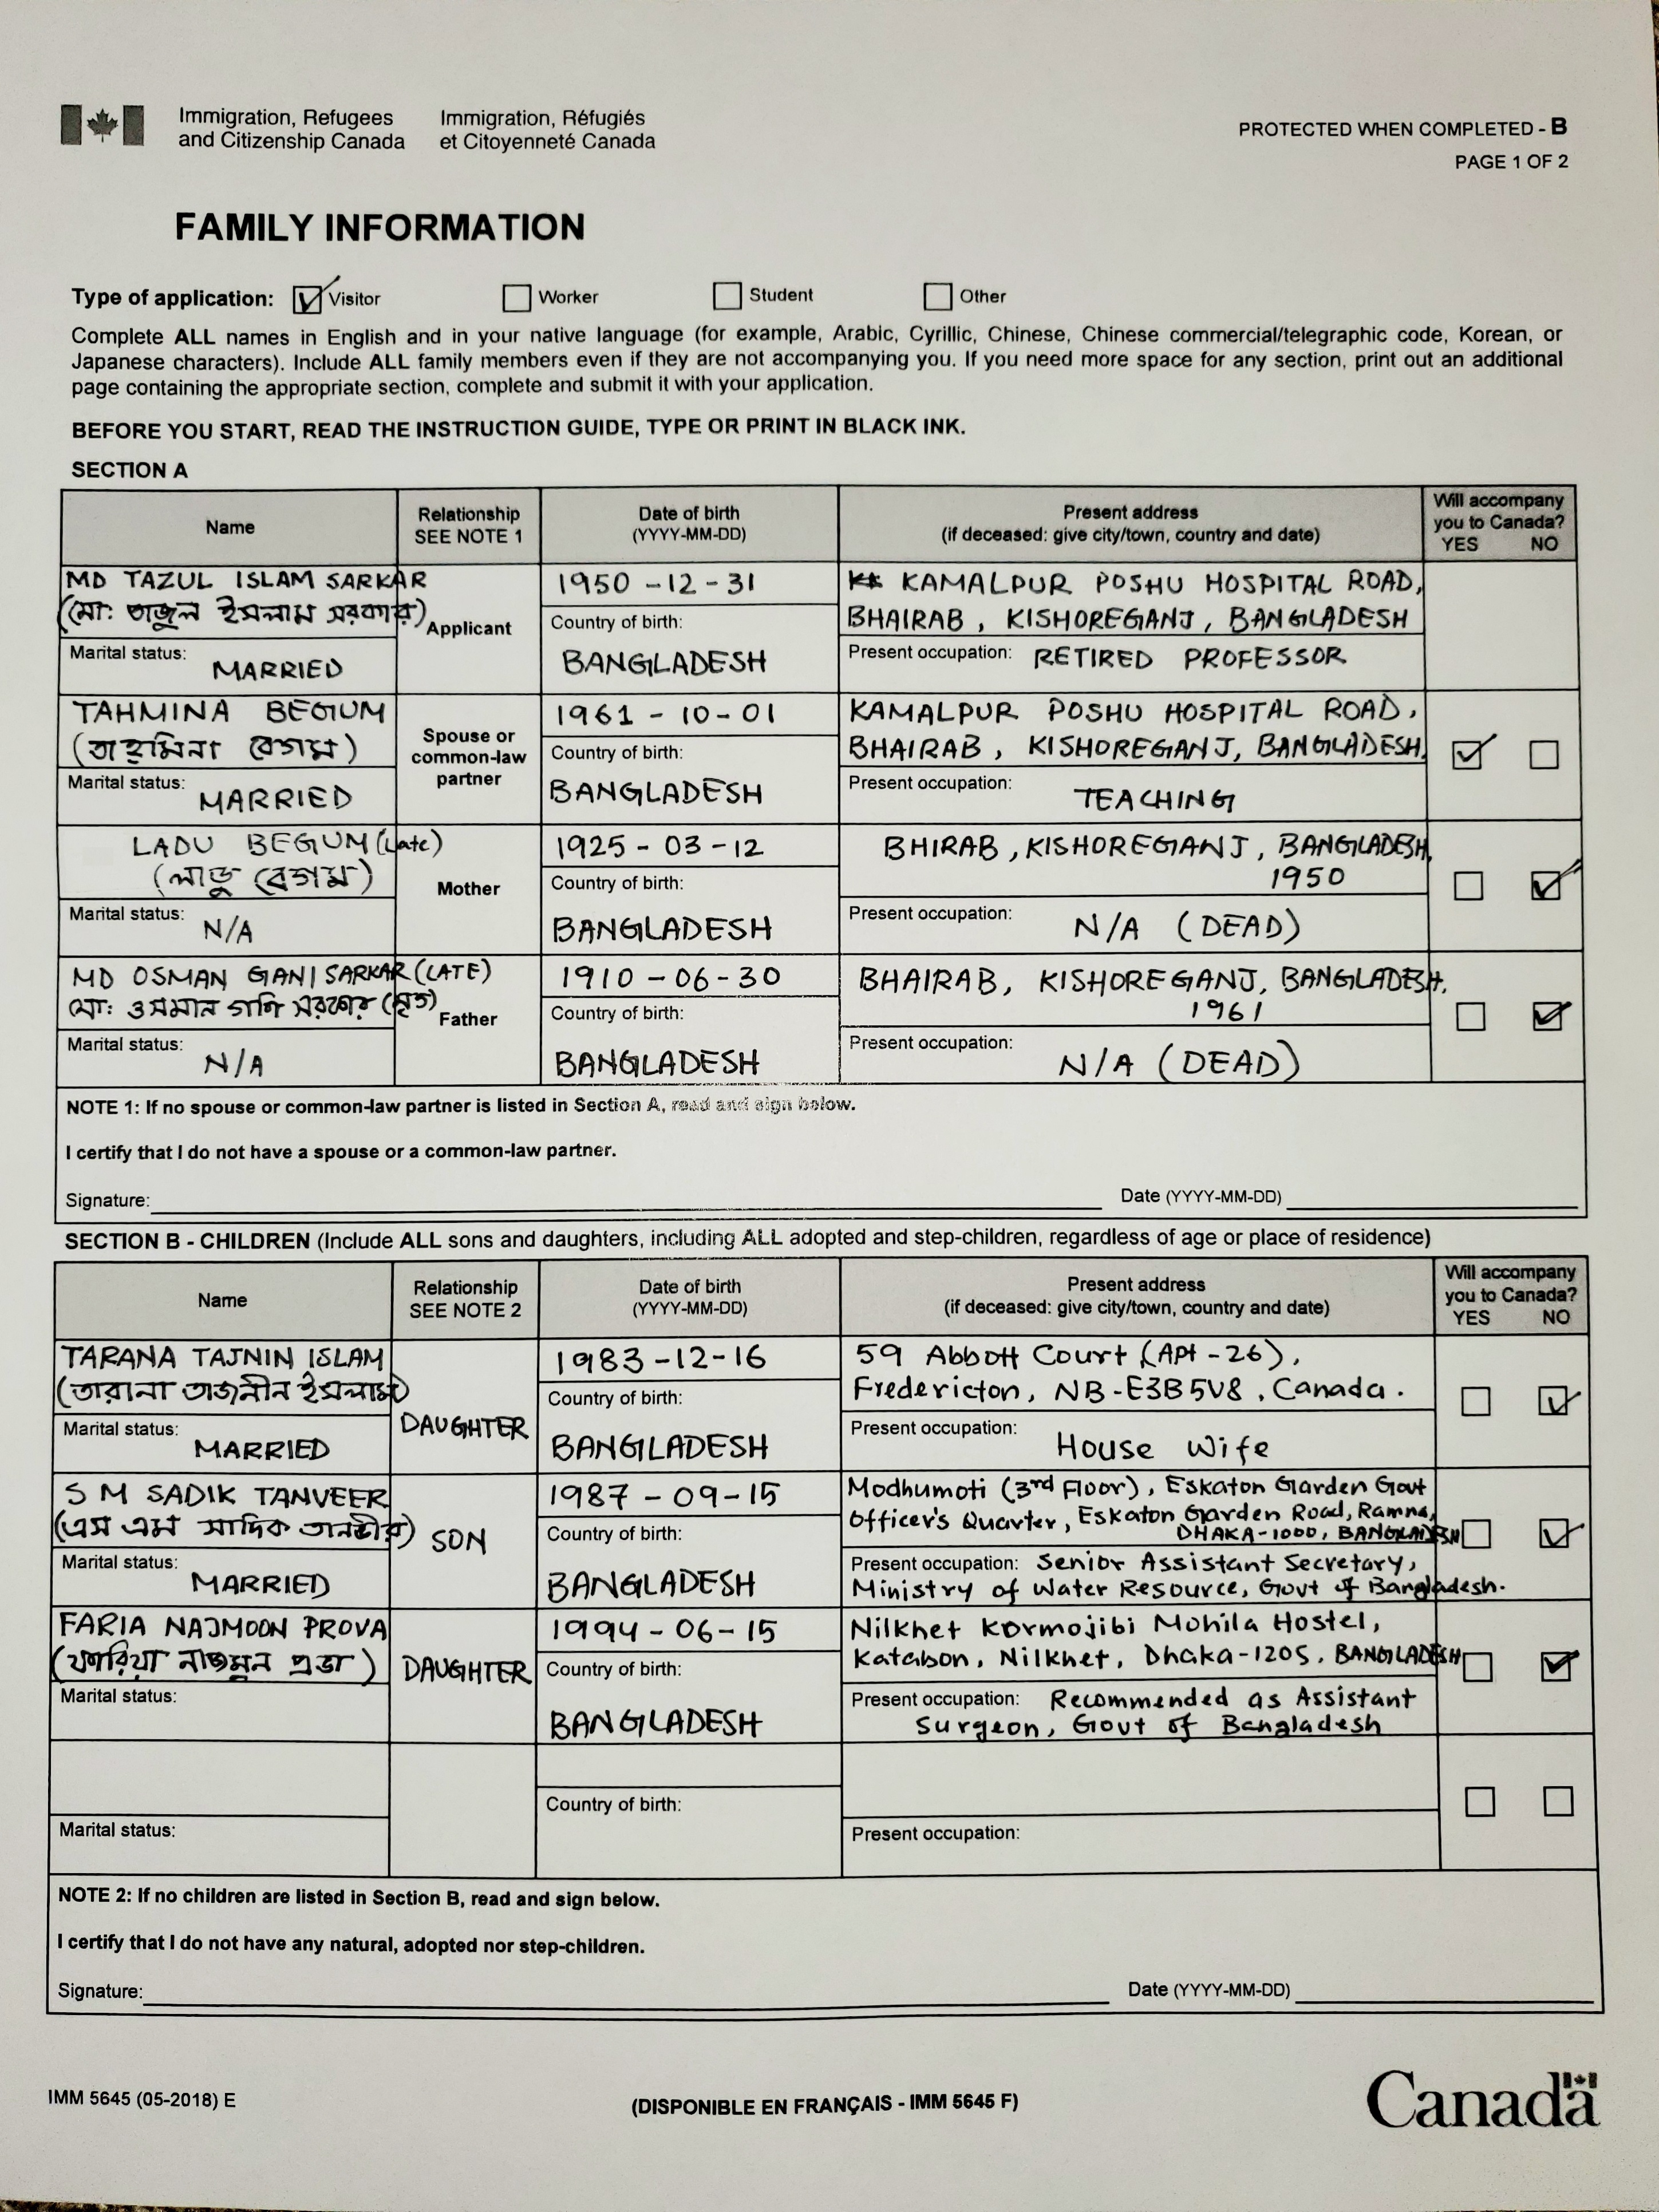 Immigration, Refugees and Citizenship Canada
Immigration, Réfugiés et Citoyenneté Canada
PROTECTED WHEN COMPLETED - B
PAGE 1 OF 2
FAMILY INFORMATION
Type of application: Visitor Worker Student Other
Complete ALL names in English and in your native language (for example, Arabic, Cyrillic, Chinese, Chinese commercial/telegraphic code, Korean, or
Japanese characters). Include ALL family members even if they are not accompanying you. If you need more space for any section, print out an additional
page containing the appropriate section, complete and submit it with your application.
BEFORE YOU START, READ THE INSTRUCTION GUIDE, TYPE OR PRINT IN BLACK INK.
SECTION A
Name
Relationship
SEE NOTE 1
Date of birth
(YYYY-MM-DD)
Present address
(if deceased: give city/town, country and date)
Will accompany
you to Canada?
YES NO
MD TAZUL ISLAM SARKAR
(মো: তাজুল ইসলাম সরকার)
Marital status: MARRIED
Applicant
1950-12-31
Country of birth:
BANGLADESH
KAMALPUR POSHU HOSPITAL ROAD,
BHAIRAB, KISHOREGANJ, BANGLADESH
Present occupation: RETIRED PROFESSOR
TAHMINA BEGUM
(তাহমিনা বেগম)
Marital status: MARRIED
Spouse or
common-law
partner
1961-10-01
Country of birth:
BANGLADESH
KAMALPUR POSHU HOSPITAL ROAD,
BHAIRAB, KISHOREGANJ, BANGLADESH.
Present occupation: TEACHING
LADU BEGUM (Late)
(লাডু বেগম)
Marital status: N/A
Mother
1925-03-12
Country of birth:
BANGLADESH
BHIRAB, KISHOREGANJ, BANGLADESH,
1950
Present occupation: N/A (DEAD)
MD OSMAN GANI SARKAR (LATE)
মো: ওসমান গনি সরকার (মৃত)
Marital status: N/A
Father
1910-06-30
Country of birth:
BANGLADESH
BHAIRAB, KISHOREGANJ, BANGLADESH,
1961
Present occupation: N/A (DEAD)
NOTE 1: If no spouse or common-law partner is listed in Section A, read and sign below.
I certify that I do not have a spouse or a common-law partner.
Signature: Date (YYYY-MM-DD)
SECTION B - CHILDREN (Include ALL sons and daughters, including ALL adopted and step-children, regardless of age or place of residence)
Name
Relationship
SEE NOTE 2
Date of birth
(YYYY-MM-DD)
Present address
(if deceased: give city/town, country and date)
Will accompany
you to Canada?
YES NO
TARANA TAJNIN ISLAM
(তারানা তাজনীন ইসলাম)
Marital status: MARRIED
DAUGHTER
1983-12-16
Country of birth:
BANGLADESH
59 Abbott Court (Apt-26),
Fredericton, NB-E3B5V8, Canada.
Present occupation: House Wife
S M SADIK TANVEER
(এস এম সাদিক তানভীর)
Marital status: MARRIED
SON
1987-09-15
Country of birth:
BANGLADESH
Modhumoti (3rd Floor), Eskaton Garden Govt
Officer's Quarter, Eskaton Garden Road, Ramna,
DHAKA-1000, BANGLADESH
Present occupation: Senior Assistant Secretary,
Ministry of Water Resource, Govt of Bangladesh.
FARIA NAJMOON PROVA
(ফারিয়া নাজমুন প্রভা)
Marital status:
DAUGHTER
1994-06-15
Country of birth:
BANGLADESH
Nilkhet Kormojibi Mohila Hostel,
Katabon, Nilkhet, Dhaka-1205, BANGLADESH
Present occupation: Recommended as Assistant
Surgeon, Govt of Bangladesh
Marital status:
Country of birth:
Present occupation:
NOTE 2: If no children are listed in Section B, read and sign below.
I certify that I do not have any natural, adopted nor step-children.
Signature: Date (YYYY-MM-DD)
IMM 5645 (05-2018) E
(DISPONIBLE EN FRANÇAIS - IMM 5645 F)
Canada